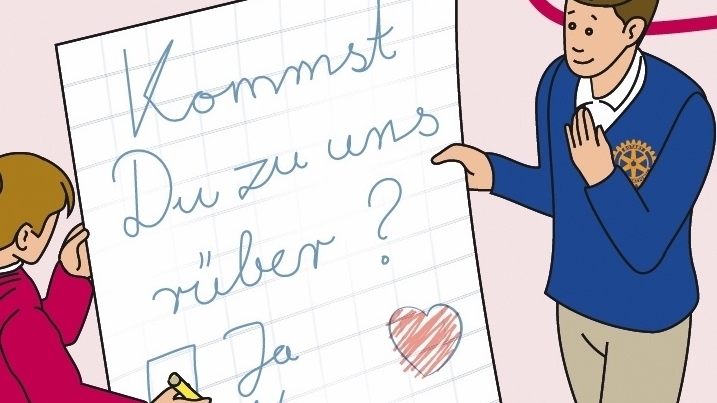 Kommst
Du zu uns
rüber ?
Ja